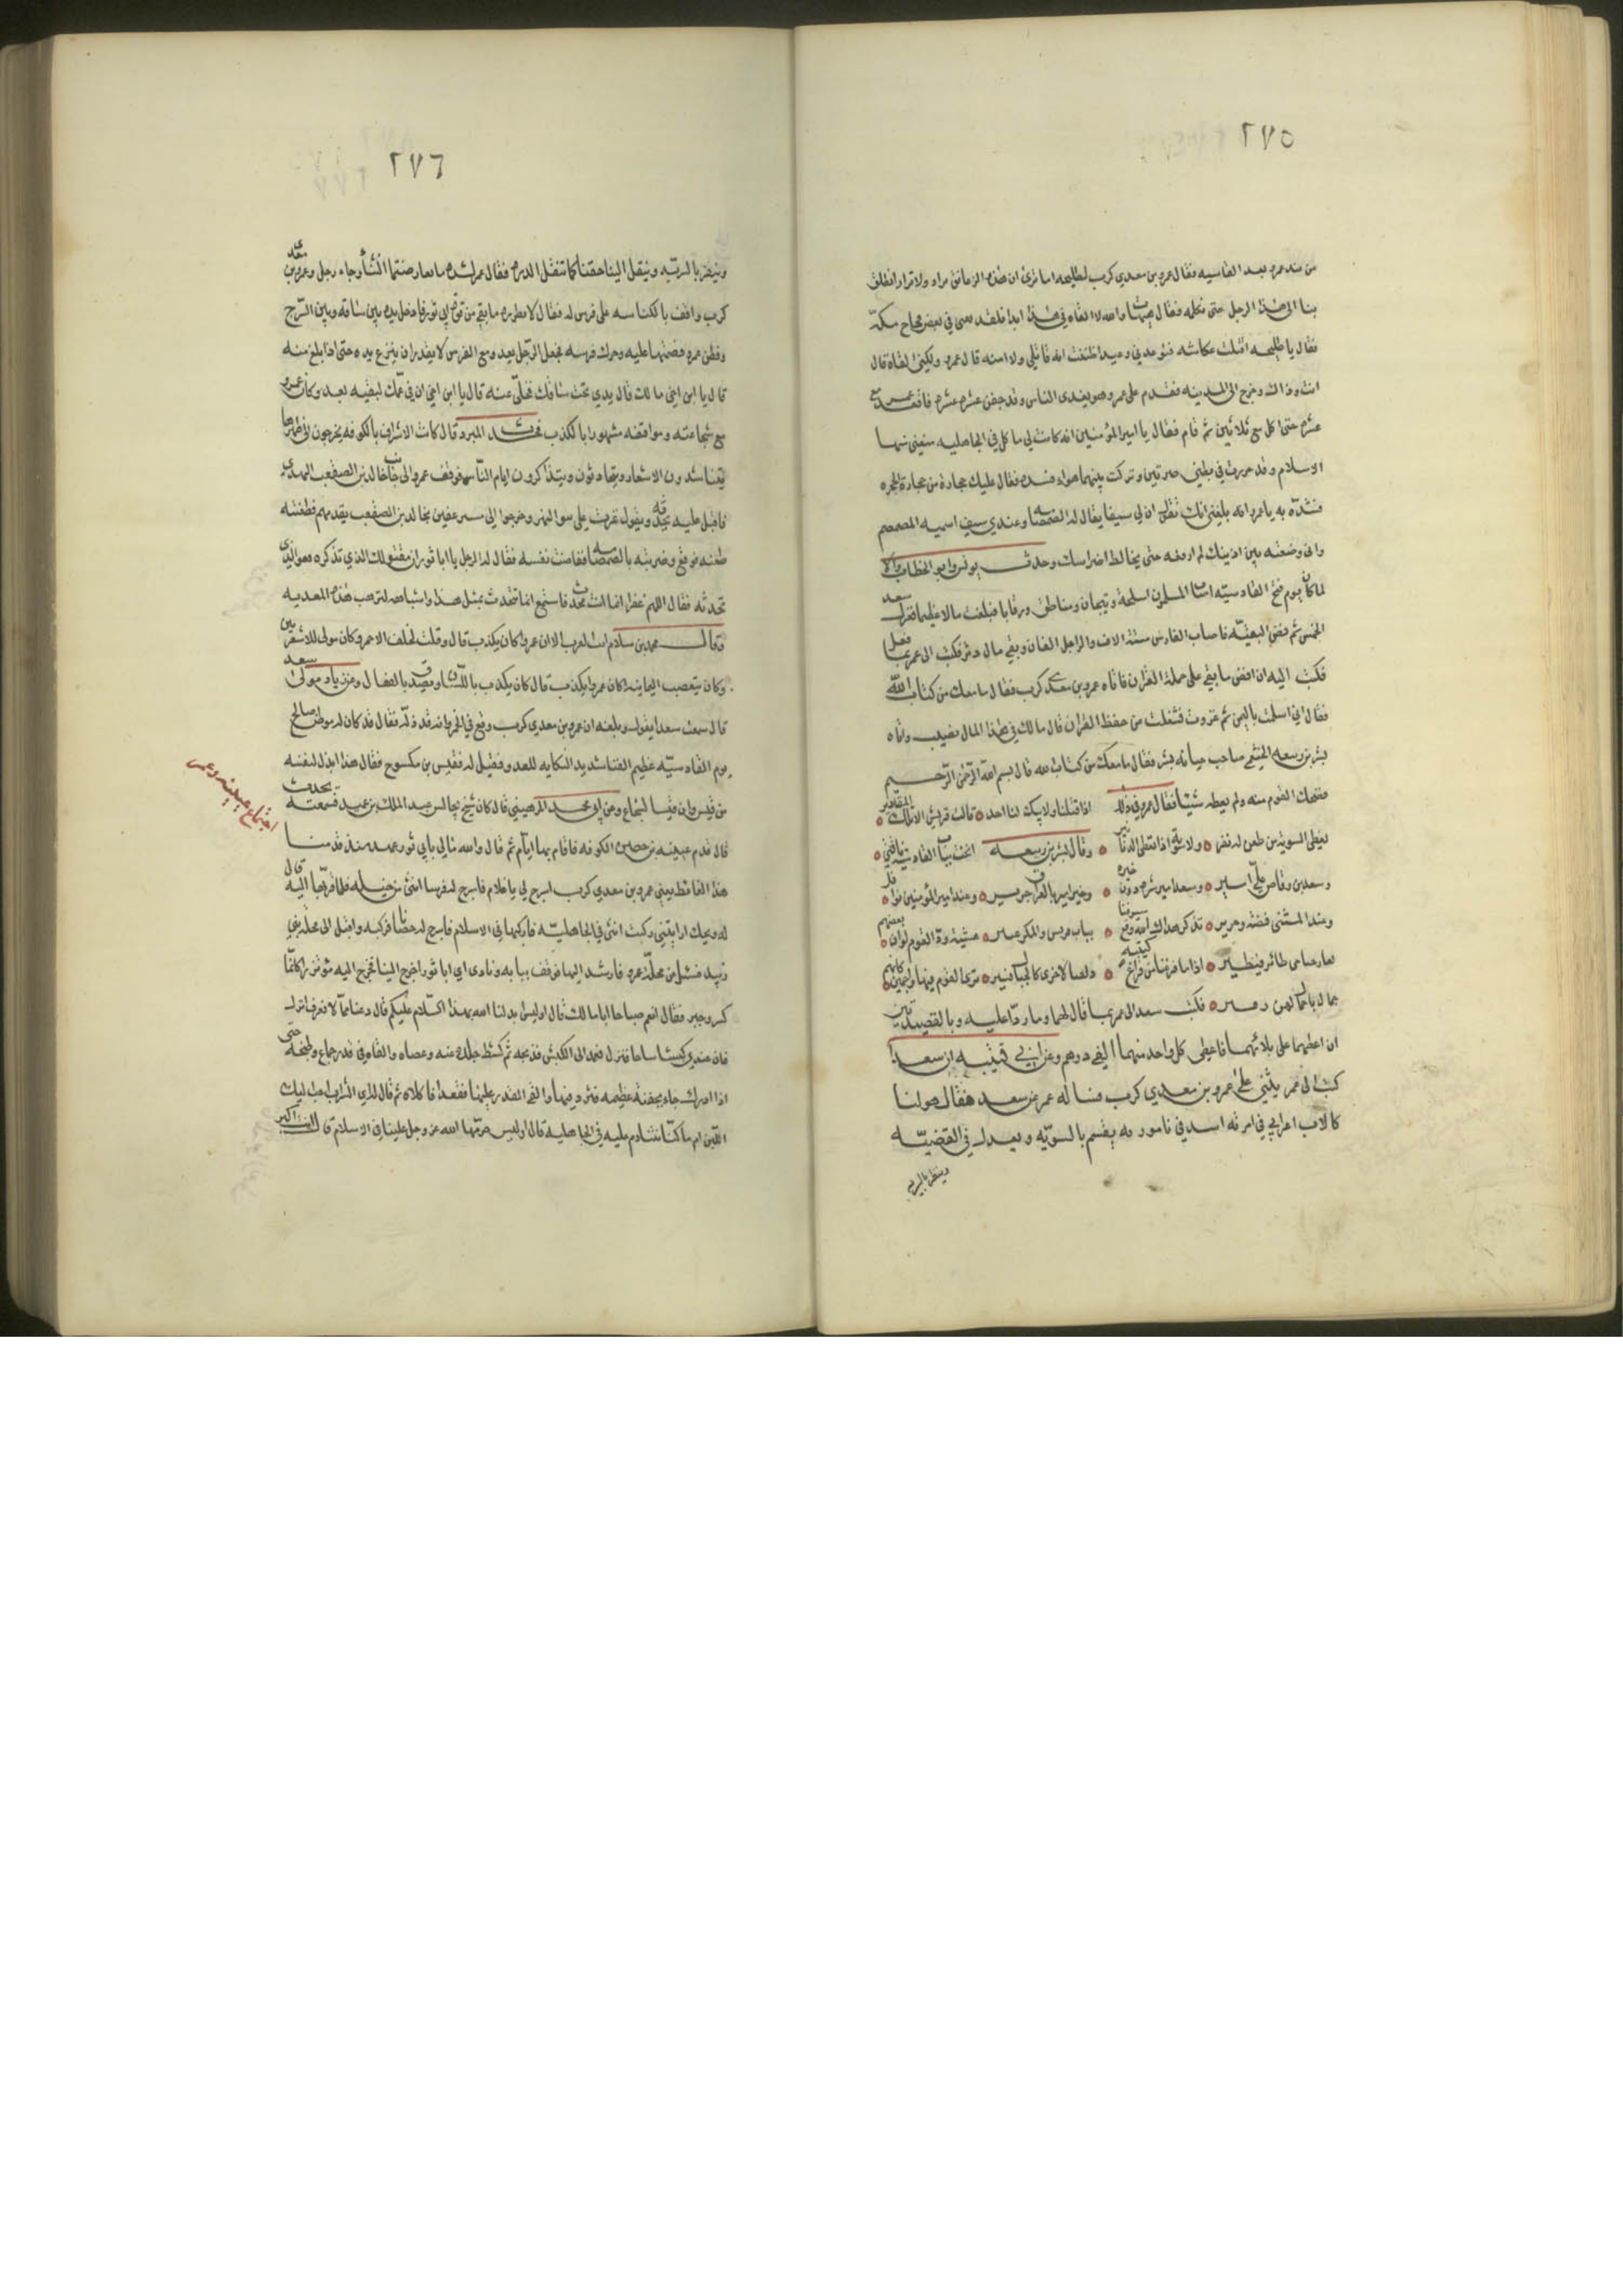 ٢٧٥
من عند عمر بعد القادسيه فقال عمرو بن معدي كرب لطليحه اما ترى ان هذه الزعانف تزاد ولا نزاد انطلق
بنا الى هذا الرجل حتى نكلمه فقال هيهات والله لا القاه في هذا ابدا فلقد لقيني في بعض فجاج مكة
فقال يا طليحه اقتلت عكاشه فتوعدني وعيدا ظننت انه قاتلي ولا امنه قال عمرو ولكني القاه قال
انت وذاك وخرج الى المدينه فقدم على عمر وهو يغدي الناس وقد جفن عشره عشره فاقعده عمر مع
عشره حتى اكل مع ثلاثين ثم قام فقال يا امير المؤمنين انه كانت لي ماكل في الجاهليه منعني منها
الاسلام وقد صررت في بطني صرتين وتركت بينهما هواء فسده فقال عليك حجارة من حجارة الحره
فسدّه به يا عمرو انه بلغني انك تقول ان لي سيفا يقال له الصمصامه وعندي سيف اسميه المصمم
واني وضعته بين اذنيك لم ارفعه حتى يخالط اضراسك وحدث يونس وابو الخطاب قالا
لما كان يوم فتح القادسيّه اصاب المسلمون اسلحة وتيجان ومناطق ورقابا فبلغت مالا عظيما فعزل سعد
الخمس ثم فض البقيّه فاصاب الفارس ستة الاف والراجل الفان وبقي مال دثر فكتب الى عمر بما فعل
فكتب اليه ان افض ما بقي على حملة القران فاتاه عمرو بن معدي كرب فقال ما معك من كتاب الله
فقال اني اسلمت باليمن ثم غزوت فشغلت من حفظ القران قال مالك في هذا المال نصيب واتاه
بشر بن ربيعه الخثعمي صاحب جبانة بشر فقال ما معك من كتاب الله قال بسم الله الرحمن الرّحيم
فضحك القوم منه ولم يعطه شيئا فقال عمرو في ذلك اذا قتلنا ولا يبكي لنا احد قالت قريش الا تلك المقادير
نعطى السوية من طعن له نفذ ولا سوية اذا نعطى الدنانير وقال بشر بن ربيعه انخت بباب القادسية ناقتي
وسعد بن وقاص عليّ امير وسعد امير شره دون خيره وخير امير بالعراق جرير وعند امير المؤمنين نوافل
وعند المثنى فضة وحرير تذكر هداك الله وقع سيوفنا بباب قديس والمكر عسير عشية ودّ القوم لو ان بعضهم
يعار جناحي طائر فيطير اذا ما فرغنا من قراع كتيبه دلفنا لاخرى كالجبال تسير ترى القوم فيها واجمين كانهم
جمال باحمال لهن زفير فكتب سعد الى عمر بما قال لهما وما ردّا عليه وبالقصيدتين
ان اعطهما على بلائهما فاعطى كل واحد منهما الفي درهم وعن ابي قتيبه ان سعدا
كتب الى عمر يثني على عمرو بن معدي كرب فساله عمر عن سعد فقال هو لنا
كالاب اعرابي في نمرته اسد في تامورته يقسم بالسويّه ويعدل في القضيّه
وينفر بالسريه
٢٧٦
وينفر بالسريّه وينقل الينا حقنا كما تنقل الذره فقال عمر لشد ما تعارضتما الثنا وجاء رجل وعمرو بن معدي
كرب واقف بالكناسه على فرس له فقال لانظرن ما بقي من قوة ابي ثور فادخل يده بين ساقه وبين السّرج
وفطن عمرو فضمّها عليه وحرك فرسه فجعل الرّجل يعدو مع الفرس لا يقدر ان ينزع يده حتى اذا بلغ منه
قال يا ابن اخي ما لك قال يدي تحت ساقك فخلّى عنه قال يا ابن اخي ان في عمّك لبقيه بعد وكان عمرو
مع شجاعته ومواقفه مشهورا بالكذب فحدث المبرد قال كانت الاشراف بالكوفه يخرجون الى ظاهرها
يتناشدون الاشعار ويتحادثون ويتذاكرون ايام الناس فوقف عمرو الى جانب خالد بن الصقعب النهدي
فاقبل عليه يحدّثه ويقول غزوت على بنوا النهد وخرجوا الي مسترعفين بخالد بن الصقعب يقدمهم فطعنته
طعنه فوقع وضربته بالصمصامه ففاضت نفسه فقال له الرجل يا ابا ثور ان مقتولك الذي تذكره هو الذي
تحدثه فقال اللهم غفرا انما انت محدث فاستمع انما نتحدث بمثل هذا واشباهه لنرهب هذه المعديه
وقال محمد بن سلام ابت العرب الا ان عمروا كان يكذب قال وقلت لخلف الاحمر وكان مولى للاشعريين
وكان يتعصب لليمانيه اكان عمروا يكذب قال كان يكذب باللّسان ويصدق بالفعال وعن زياد مولى سعد
قال سمعت سعدا يقول وبلغه ان عمرو بن معدي كرب وقع في الخمر وانه قد ذلّه فقال قد كان له موطن صالح
يوم القادسيّه عظيم الغنا شديد النكايه للعدو فقيل له فقيس بن مكشوح فقال هذا ابذل لنفسه
من قيس وان قيسا لشجاع وعن ابي محمد المرهبيني قال كان شيخ يجالس عبد الملك بن عمير فسمعته يحدث
قال قدم عيينه بن حصن الكوفه فاقام بها ايام ثم قال والله مالي بابي ثور عهد منذ قدمنا
هذا الغائط يعني عمرو بن معدي كرب اسرج لي يا غلام فاسرج له فرسا انثى من خيله فلما قربها اليه قال
له ويحك ارايتني ركبت انثى في الجاهليّه فاركبها في الاسلام فاسرج له حصانا فركبه واقبل الى محلة بني
زبيد فسئل عن محلّة عمرو فارشد اليها فوقف ببابه ونادى اي ابا ثور اخرج الينا فخرج اليه مؤتزرا كانما
كسر وجبر فقال انعم صباحا ابا مالك قال اوليس بدلنا الله بهذا السّلام عليكم قال دعنا ممّا لا نعرف انزل
فان عندي كبشا ساحا فنزل فعمد الى الكبش فذبحه ثم كشط جلده عنه وعضاه والقاه في قدر جماع وطبخه حتى
اذا ادرك جاء بجفنة عظيمه فثرد فيها والقى القدر عليها فقعدا فاكلاه ثم قال له اي الشراب احب اليك
اللّبن ام ما كنّا نتنادم عليه في الجاهليه قال اوليس حرّمها الله عز وجل علينا في الاسلام قال انت اكبر
اجتماع عيينه وعمرو